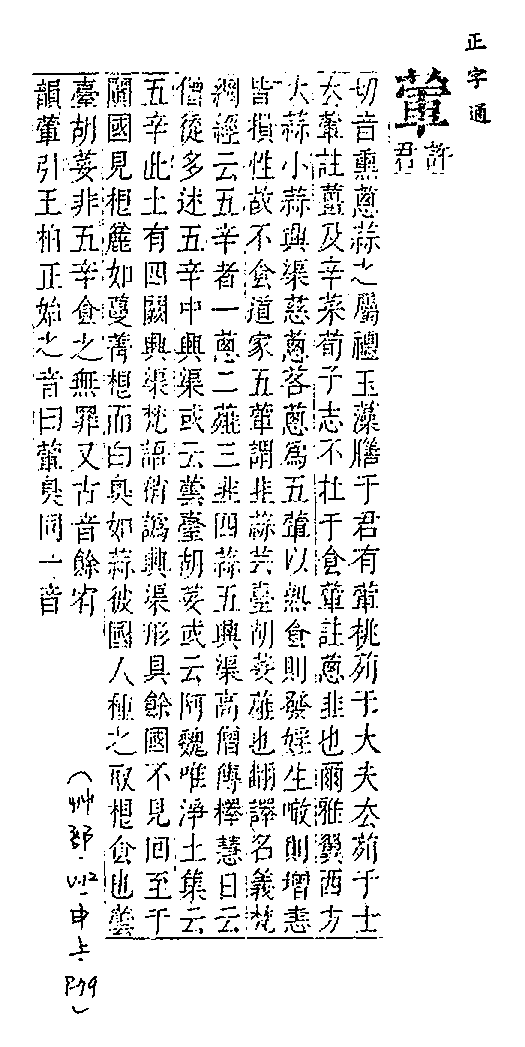 正字通
葷
許
君
切音熏蔥蒜之屬禮玉藻膳于君有葷桃茢于大夫去茢于士
去葷註薑及辛菜荀子志不在于食葷註蔥韭也爾雅翼西方
大蒜小蒜興渠慈蔥茖蔥為五葷以熟食則發婬生噉則增恚
皆損性故不食道家五葷謂韭蒜芸薹胡荽薤也翻譯名義梵
網經云五辛者一蔥二薤三韭四蒜五興渠高僧傳櫸慧日云
僧徒多迷五辛中興渠或云蕓薹胡荽或云阿魏唯淨土集云
五辛此土有四闕興渠梵語俏譌興渠形具餘國不見回至于
闐國見根麄如蔓菁根而白臭如蒜彼國人種之取根食也蕓
薹胡荽非五辛食之無罪又古音餘宥
韻葷引王柏正始之音曰葷臭同一音
(艸部.
申上.
P.79)